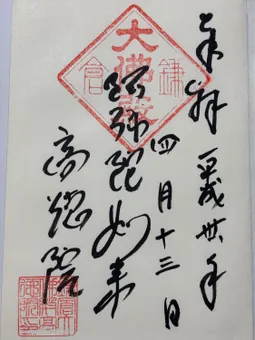 奉拝 平成卅年
四月十三日
大佛殿
鎌倉
阿弥陀如来
高徳院